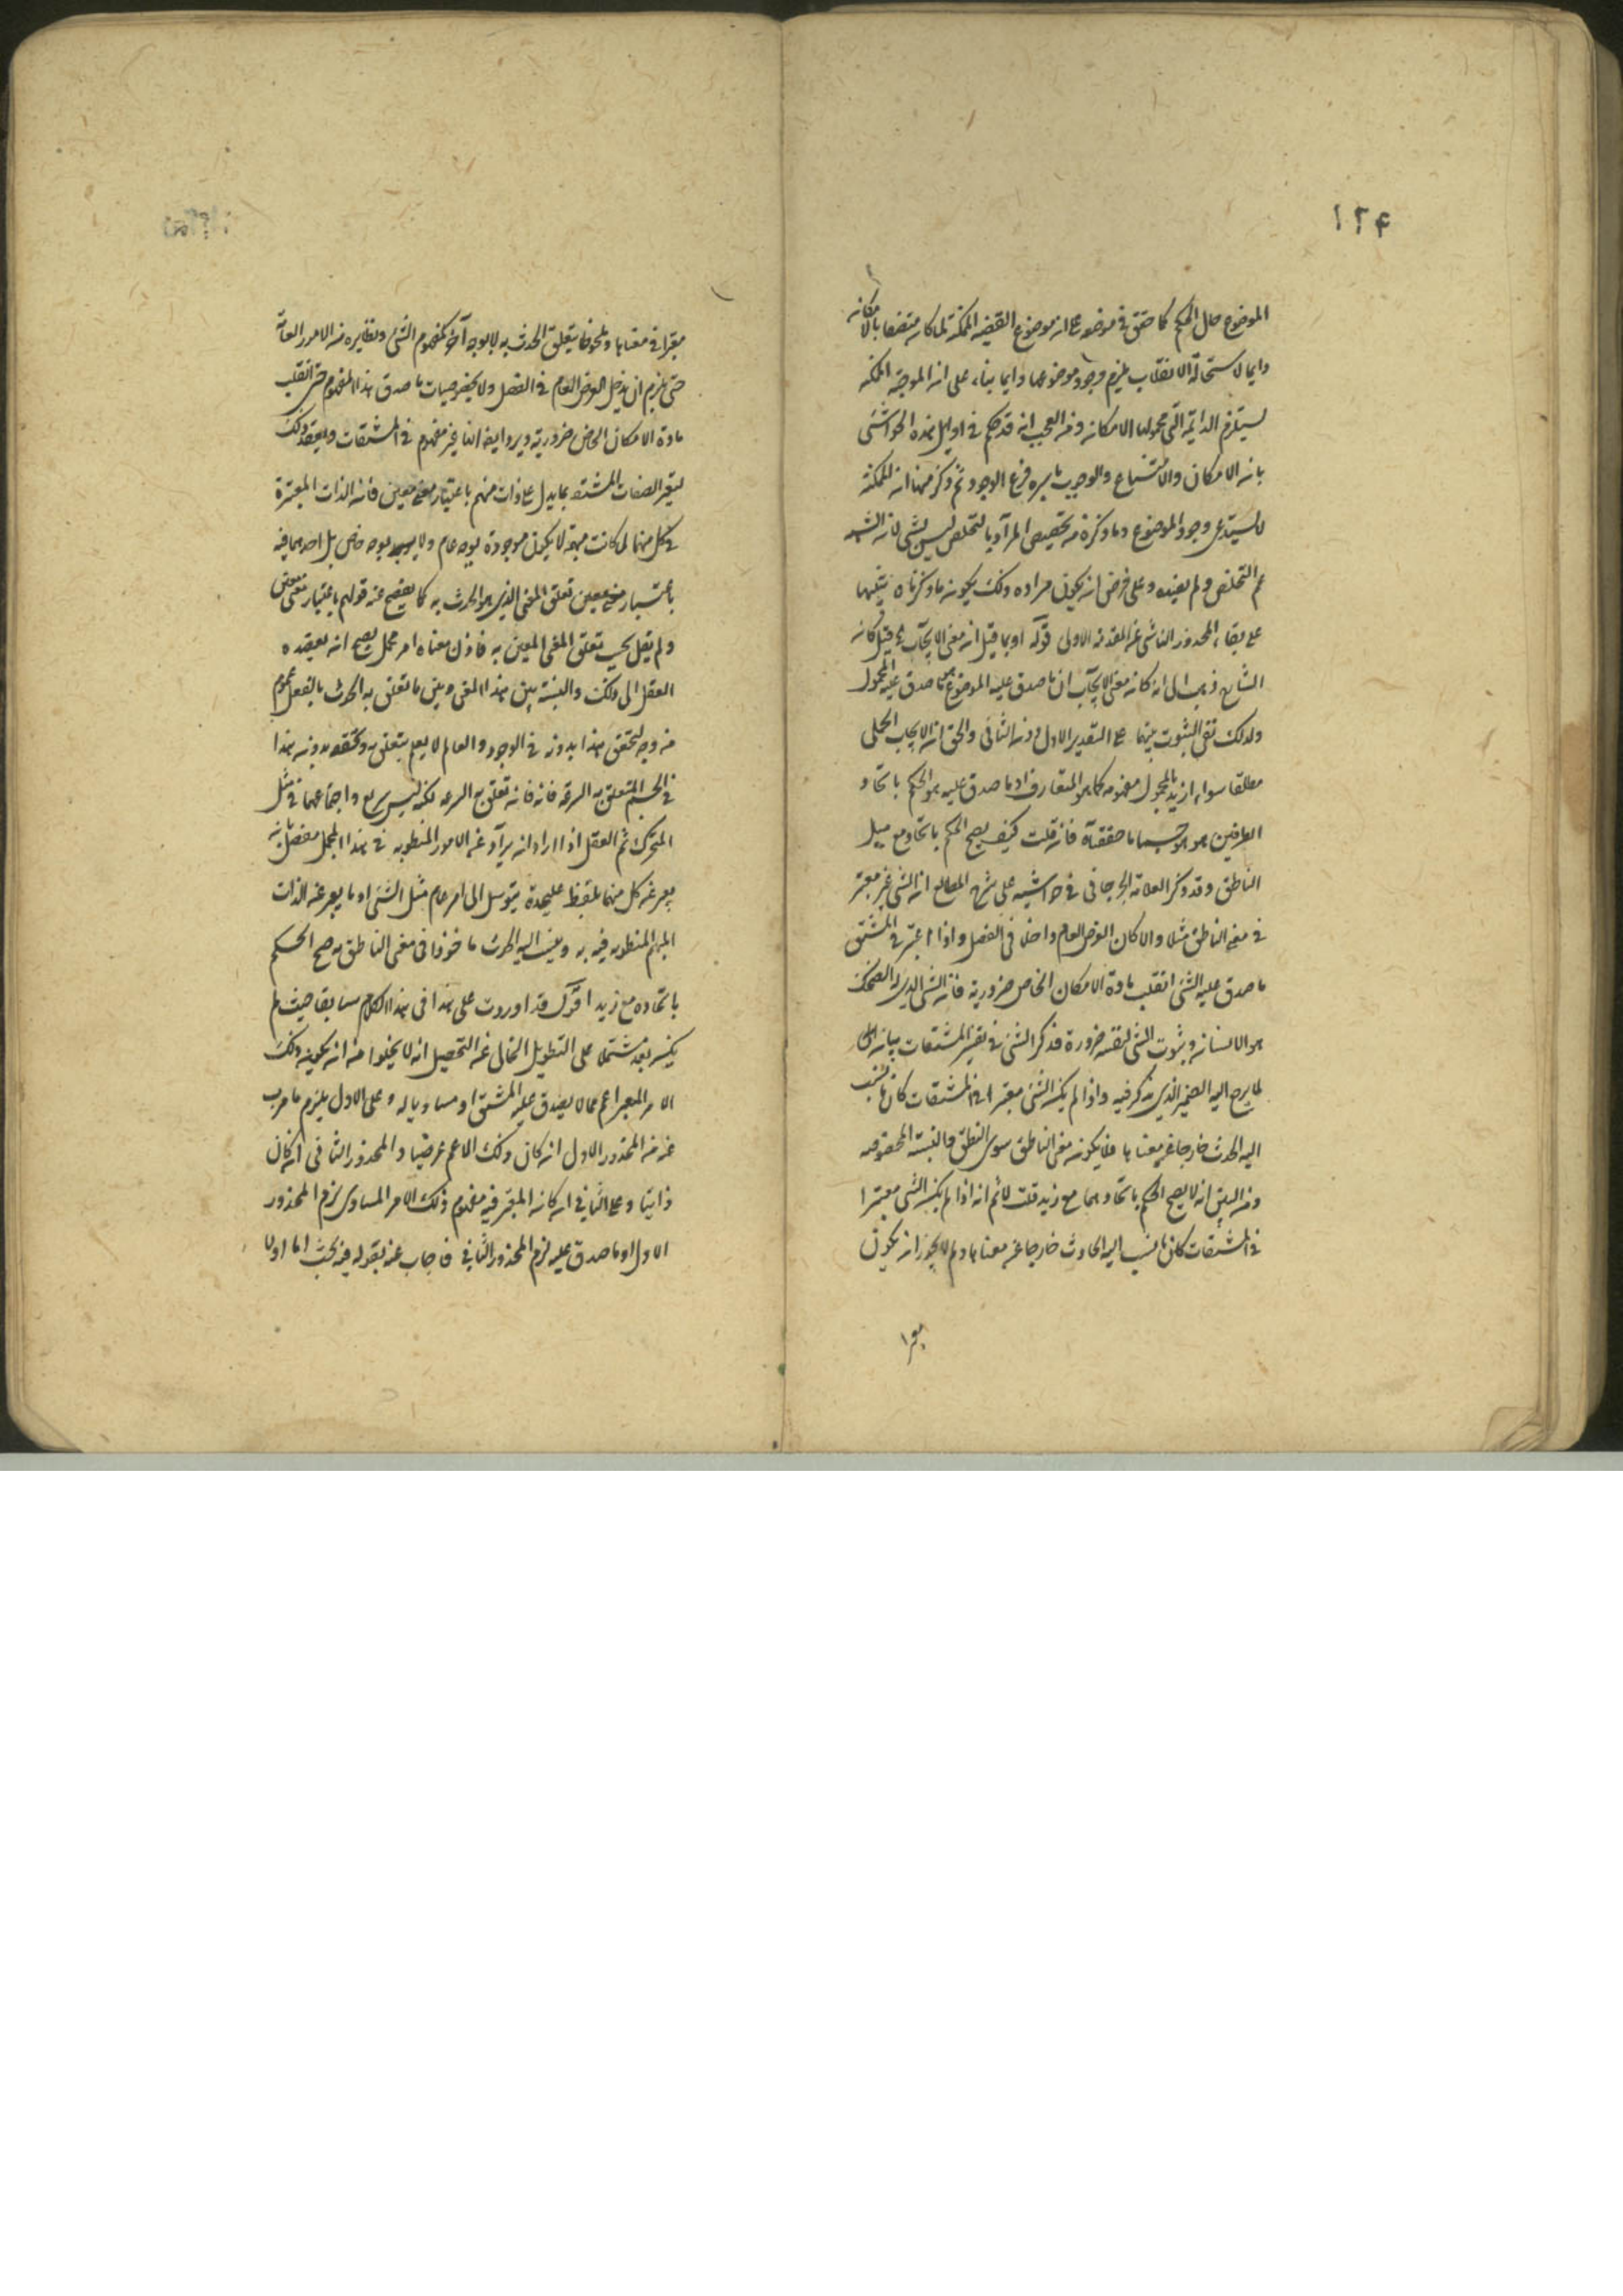 ١٢۴
الموضوع حال الحكم كما حقق في موضوعه على ان موضوع القضية الممكنة لما كان متصفا بالامكان
دايما لاستحالة الانقلاب يلزم وجود موضوعها دايما بناء على ان الموجبة الممكنة
يستلزم الدايمة التي محمولها الامكان ومن العجب انه قد حكم في اوايل هذه الحواشي
بان الامكان والامتناع والوجوب باسره فرع الوجود ثم ذكر ههنا ان الممكنة
لا يستدعى وجود الموضوع وما ذكره من تخصيص المراد بالتخلص ليس بشي لانه
عم التخلص ولم يقيده وعلى فرض ان يكون مراده ذلك يكون ما ذكرناه تنبيها
على بقاء المحذور الناشى عن المقدمة الاولى قوله او بما قيل ان معنى الايجاب قيل كان
الشارح ذهب الى انه كان معنى الايجاب ان ما صدق عليه الموضوع هو ما صدق عليه المحمول
ولذلك نفى الثبوت بينهما على التقدير الاول دون الثانى والحق ان الايجاب الحملى
مطلقا سواء اريد بالمحمول مفهومه كما هو المتعارف او ما صدق عليه هو الحكم باتحاد
الطرفين هو هو حسبما حققناه فان قلت كيف يصح الحكم باتحاده مع
الناطق وقد ذكر العلامة الجرجاني في حواشيه على شرح المطالع ان الشي غير معتبر
في معنى الناطق مثلا والا كان العرض العام داخلا في الفصل واذا اعتبر في المشتق
ما صدق عليه الشي انقلب مادة الامكان الخاص ضرورية فان الشي الذي له الضحك
هو الانسان وثبوت الشي لنفسه ضرورة فذكر الشي في تفسير المشتقات بيان
لما يرجع اليه الضمير الذي يذكر فيه واذا لم يكن الشي معتبرا في المشتقات كان ما ينسب
اليه الحدث خارجا عن معناها فلا يكون معنى الناطق سوى النطق والنسبة
ومن البين انه لا يصح الحكم باتحادهما مع زيد قلت لا نم انه اذا لم يكن الشي معتبرا
في المشتقات كان ما ينسب اليه الحادث خارجا عن معناها ولم لا يجوز ان يكون
معتبرا
معتبرا في معناها وملحوظا بتعلق الحدث به لا بوجه آخر كمفهوم الشي ونظايره من الامور العامة
حتى يلزم ان يدخل العرض العام في الفصل ولا بخصوصيات ما صدق هذا المفهوم حتى انقلب
مادة الامكان الخاص ضرورية غير مفهوم في المشتقات ويعضد ذلك
تفسير الصفات المشتقة بما يدل على ذات مبهم باعتبار معنى معين فان الذات المعتبرة
في كل منها لما كانت مبهمة لا يكون موجودة بوجه عام ولا بوجه خاص بل
باعتبار معنى معين تعلق المعنى الذي هو الحدث به كما يفصح عنه قولهم باعتبار معنى معين
ولم يقل بحسب تعلق المعنى المعين به فاذن معناه امر مجمل يصح ان يعقده
العقل الى ذلك والنسبة بين هذا المعنى وبين ما تعلق به الحدث بالفعل عموم
من وجه لتحقق هذا بدونه في الوجود والعالم لا يعم يتعلق به وتحققه بدون هذا
في الجسم المتعلق به السرعة فانه فانه تعلق به السرعة لكنه ليس بسريع واجتماعهما في مثل
المتحرك ثم العقل اذا اراد ان يراد عن الامور المنطوية في هذا المجمل مفصلا بان
يعبر عن كل منها بلفظ عليحدة يتوسل الى امر عام مثل الشي او ما يعبر عن الذات
المبهم المنطوية فيه به وينسب اليه الحدث ماخوذا في معنى الناطق به صح الحكم
باتحاده مع زيد اقول قد اوردت على هذا في هذا الكلام سابقا حيث لم
يكن بعد مشتملا على التطويل الخالى عن التحصيل انه لا يخلوا من ان يكون ذلك
الامر المعبر اعم مما لا يصدق عليه المشتق او مساويا له وعلى الاول يلزم ما هرب
عنه من المحذور الاول ان كان ذلك الاعم عرضيا والمحذور الثاني ان كان
ذاتيا وعلى الثاني ان كان المعتبر فيه مفهوم ذلك الامر المساوى لزم المحذور
الاول او ما صدق عليه لزم المحذور الثاني فاجاب عنه بقوله فيه بحث اما اولا